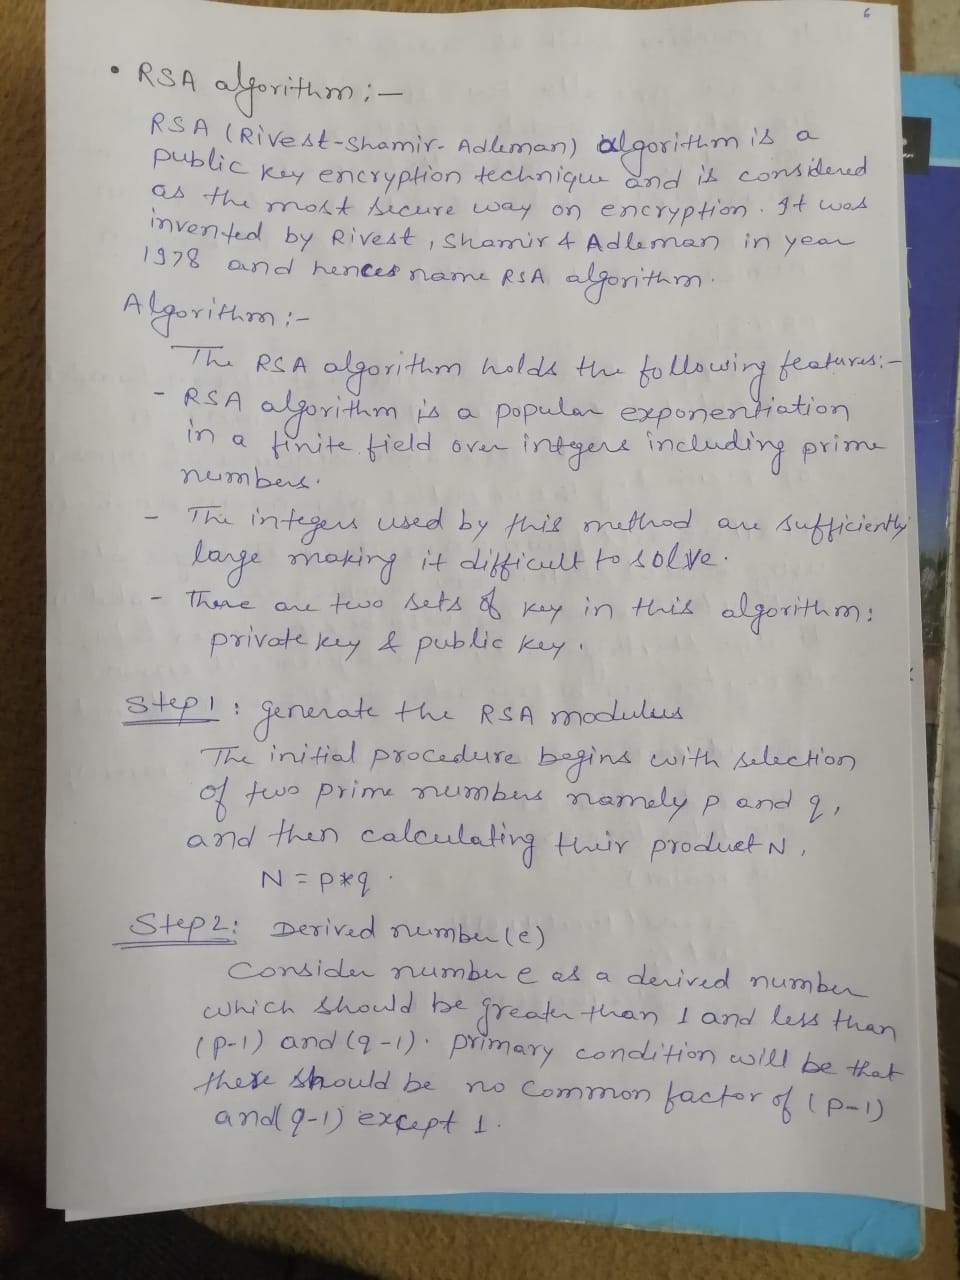 6
• RSA algorithm :-
RSA (Rivest-Shamir- Adleman) algorithm is a
public key encryption technique and is considered
as the most secure way on encryption. It was
invented by Rivest, Shamir & Adleman in year
1978 and hences name RSA algorithm.
Algorithm :-
The RSA algorithm holds the following features:-
- RSA algorithm is a popular exponentiation
in a finite field over integers including prime
numbers.
- The integers used by this method are sufficiently
large making it difficult to solve.
- There are two sets of key in this algorithm:
private key & public key.
Step 1 : generate the RSA modulus
The initial procedure begins with selection
of two prime numbers namely p and q,
and then calculating their product N,
N = p*q
Step 2: Derived number (e)
Consider number e as a derived number
which should be greater than 1 and less than
(p-1) and (q-1). primary condition will be that
there should be no common factor of (p-1)
and (q-1) except 1.